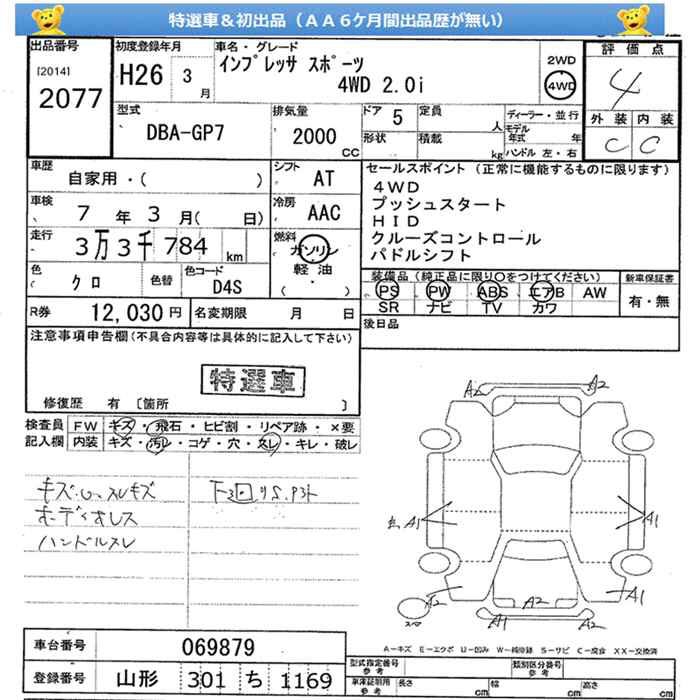 特選車&初出品（ＡＡ６ケ月間出品歴が無い）
出品番号
[2014]
2077
初度登録年月
H26 3 月
車名・グレード
インプレッサ スポーツ
4WD 2.0i
2WD
4WD
評価点
4
外装 内装
C C
型式
DBA-GP7
排気量
2000 CC
ドア 5
定員 人
形状
積載 kg
ディーラー・並行
モデル年式 年
ハンドル 左・右
車歴
自家用・( )
シフト AT
車検
7 年 3 月( 日)
冷房 AAC
走行
3万3千784 km
燃料
ガソリン
軽油
・( )
色
クロ
色替
色コード
D4S
R券 12,030 円
名変期限 月 日
セールスポイント（正常に機能するものに限ります）
4WD
プッシュスタート
HID
クルーズコントロール
パドルシフト
装備品（純正品に限り○をつけてください）
PS PW ABS エアB AW
SR ナビ TV カワ
新車保証書
有・無
後日品
注意事項申告欄(不具合内容等は具体的に記入して下さい)
特選車
修復歴 有 〔箇所 〕
検査員
記入欄
FW キズ・飛石・ヒビ割・リペア跡・×要
内装 キズ・汚レ・コゲ・穴・スレ・キレ・破レ
スレキズ
ハンドルスレ
A2 A2
A1 A1
A2 A1
A1 A2 A2
スペア
A－キズ E－エクボ U－凹み W－補修跡 S－サビ C－腐食 XX－交換済
車台番号 069879
登録番号 山形 301 ち 1169
型式指定番号
参考
類別区分番号
参考
車庫証明用
参考
長さ cm
幅 cm
高さ cm